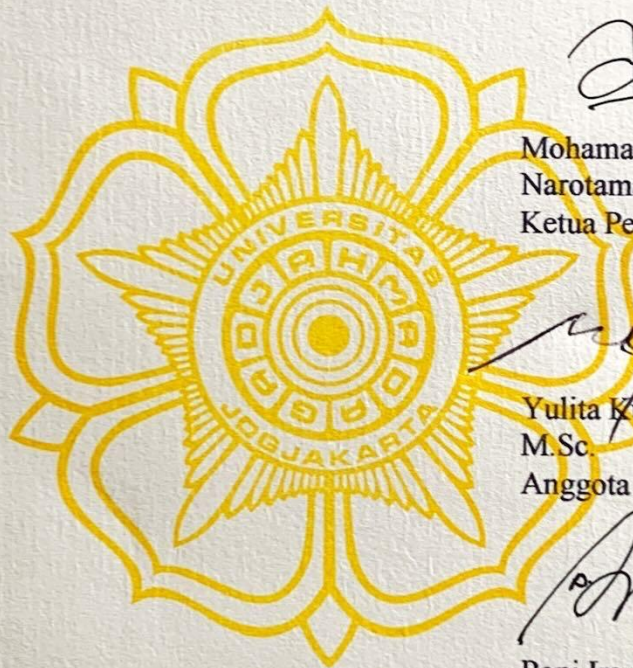 UNIVERSITAS
GADJAH MADA
JOGJAKARTA
Mohama
Narotam
Ketua Pe
Yulita K
M.Sc.
Anggota